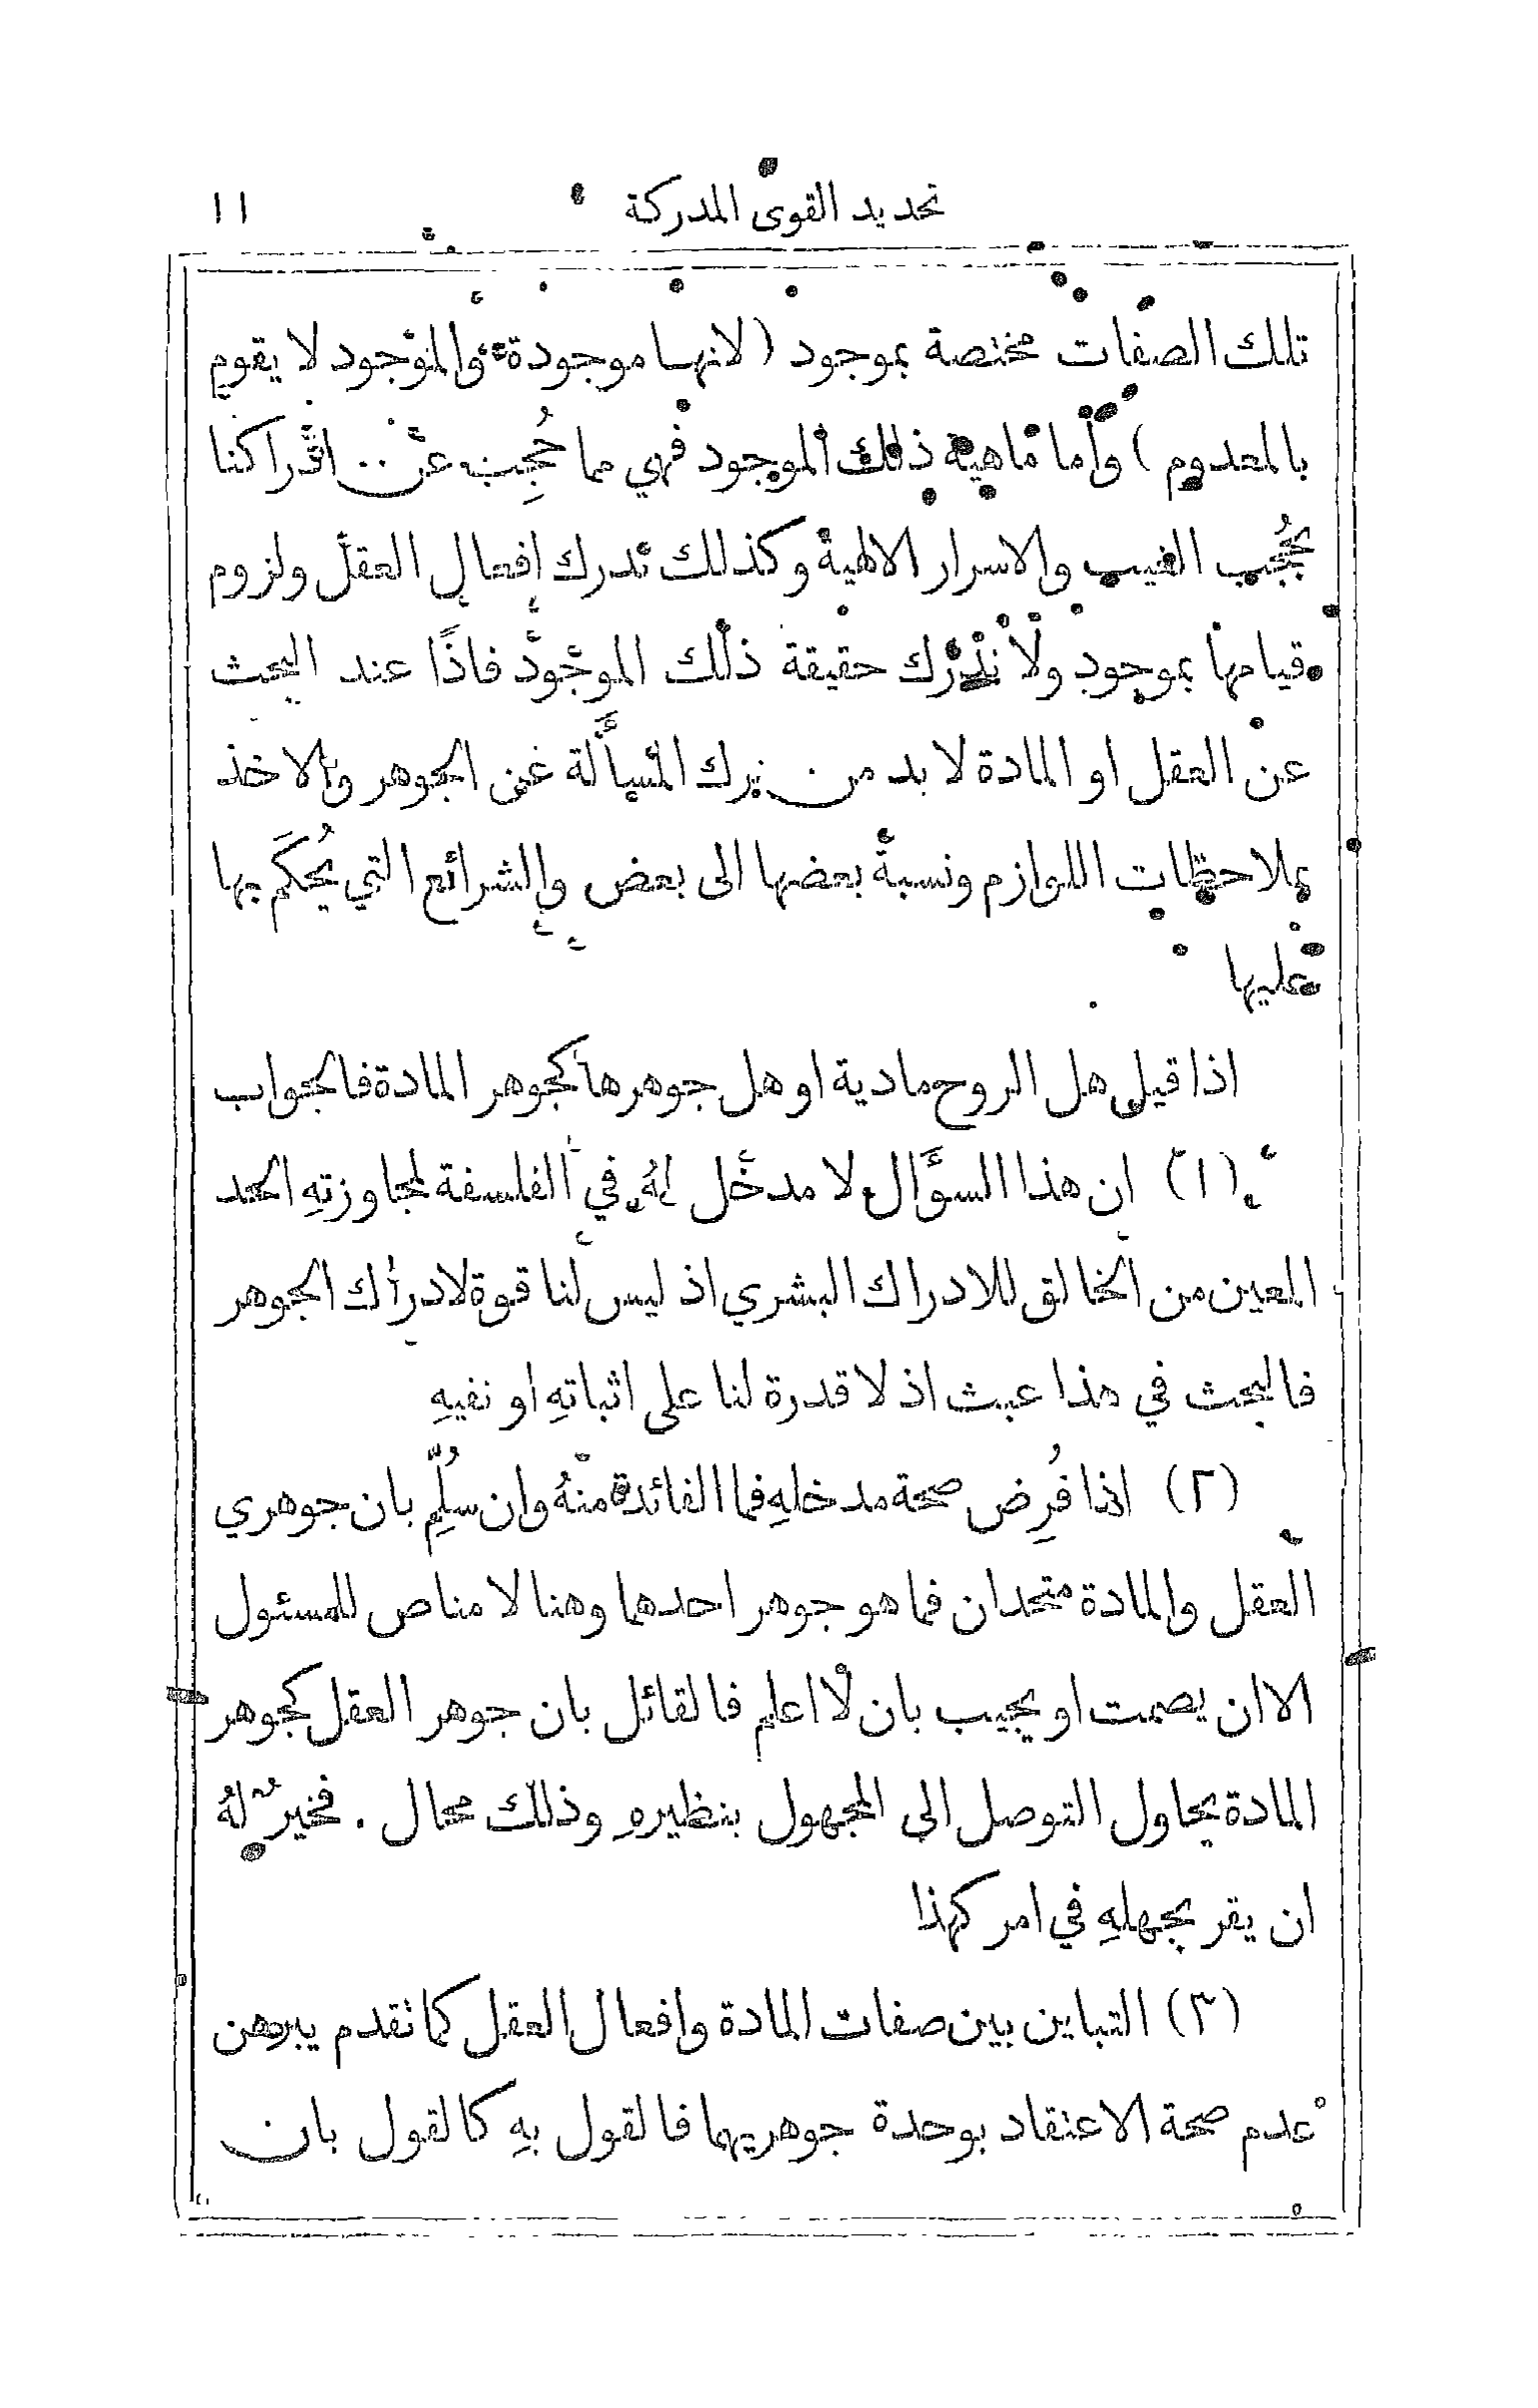 تحديد القوى المدركة ١١
تلك الصفات مختصة بموجود (لانها موجودة والموجود لا يقوم
بالمعدوم) وأما ماهية ذلك الموجود فهي مما حُجِب عن ادراكنا
بحُجب الغيب والاسرار الالهية وكذلك ندرك افعال العقل ولزوم
قيامها بموجود ولا ندرك حقيقة ذلك الموجود فاذًا عند البحث
عن العقل او المادة لا بد من ترك المسأَلة عن الجوهر والاخذ
بملاحظات اللوازم ونسبة بعضها الى بعض والشرائع التي يُحكَم بها
عليها
اذا قيل هل الروح مادية او هل جوهرها كجوهر المادة فالجواب
(١) ان هذا السوَّال لا مدخل لهُ في الفلسفة لمجاوزتهِ الحد
المعين من الخالق للادراك البشري اذ ليس لنا قوة لادراك الجوهر
فالبحث في هذا عبث اذ لا قدرة لنا على اثباتهِ او نفيهِ
(٢) اذا فُرِض صحة مدخلهِ فما الفائدة منهُ وان سُلِّم بان جوهري
العقل والمادة متحدان فما هو جوهر احدهما وهنا لا مناص للمسئول
الا ان يصمت او يجيب بان لا اعلم فالقائل بان جوهر العقل كجوهر
المادة يحاول التوصل الى المجهول بنظيرهِ وذلك محال . فخيرٌ لهُ
ان يقر بجهلهِ في امر كهذا
(٣) التباين بين صفات المادة وافعال العقل كما نقدم يبرهن
عدم صحة الاعتقاد بوحدة جوهريهما فالقول بهِ كالقول بان